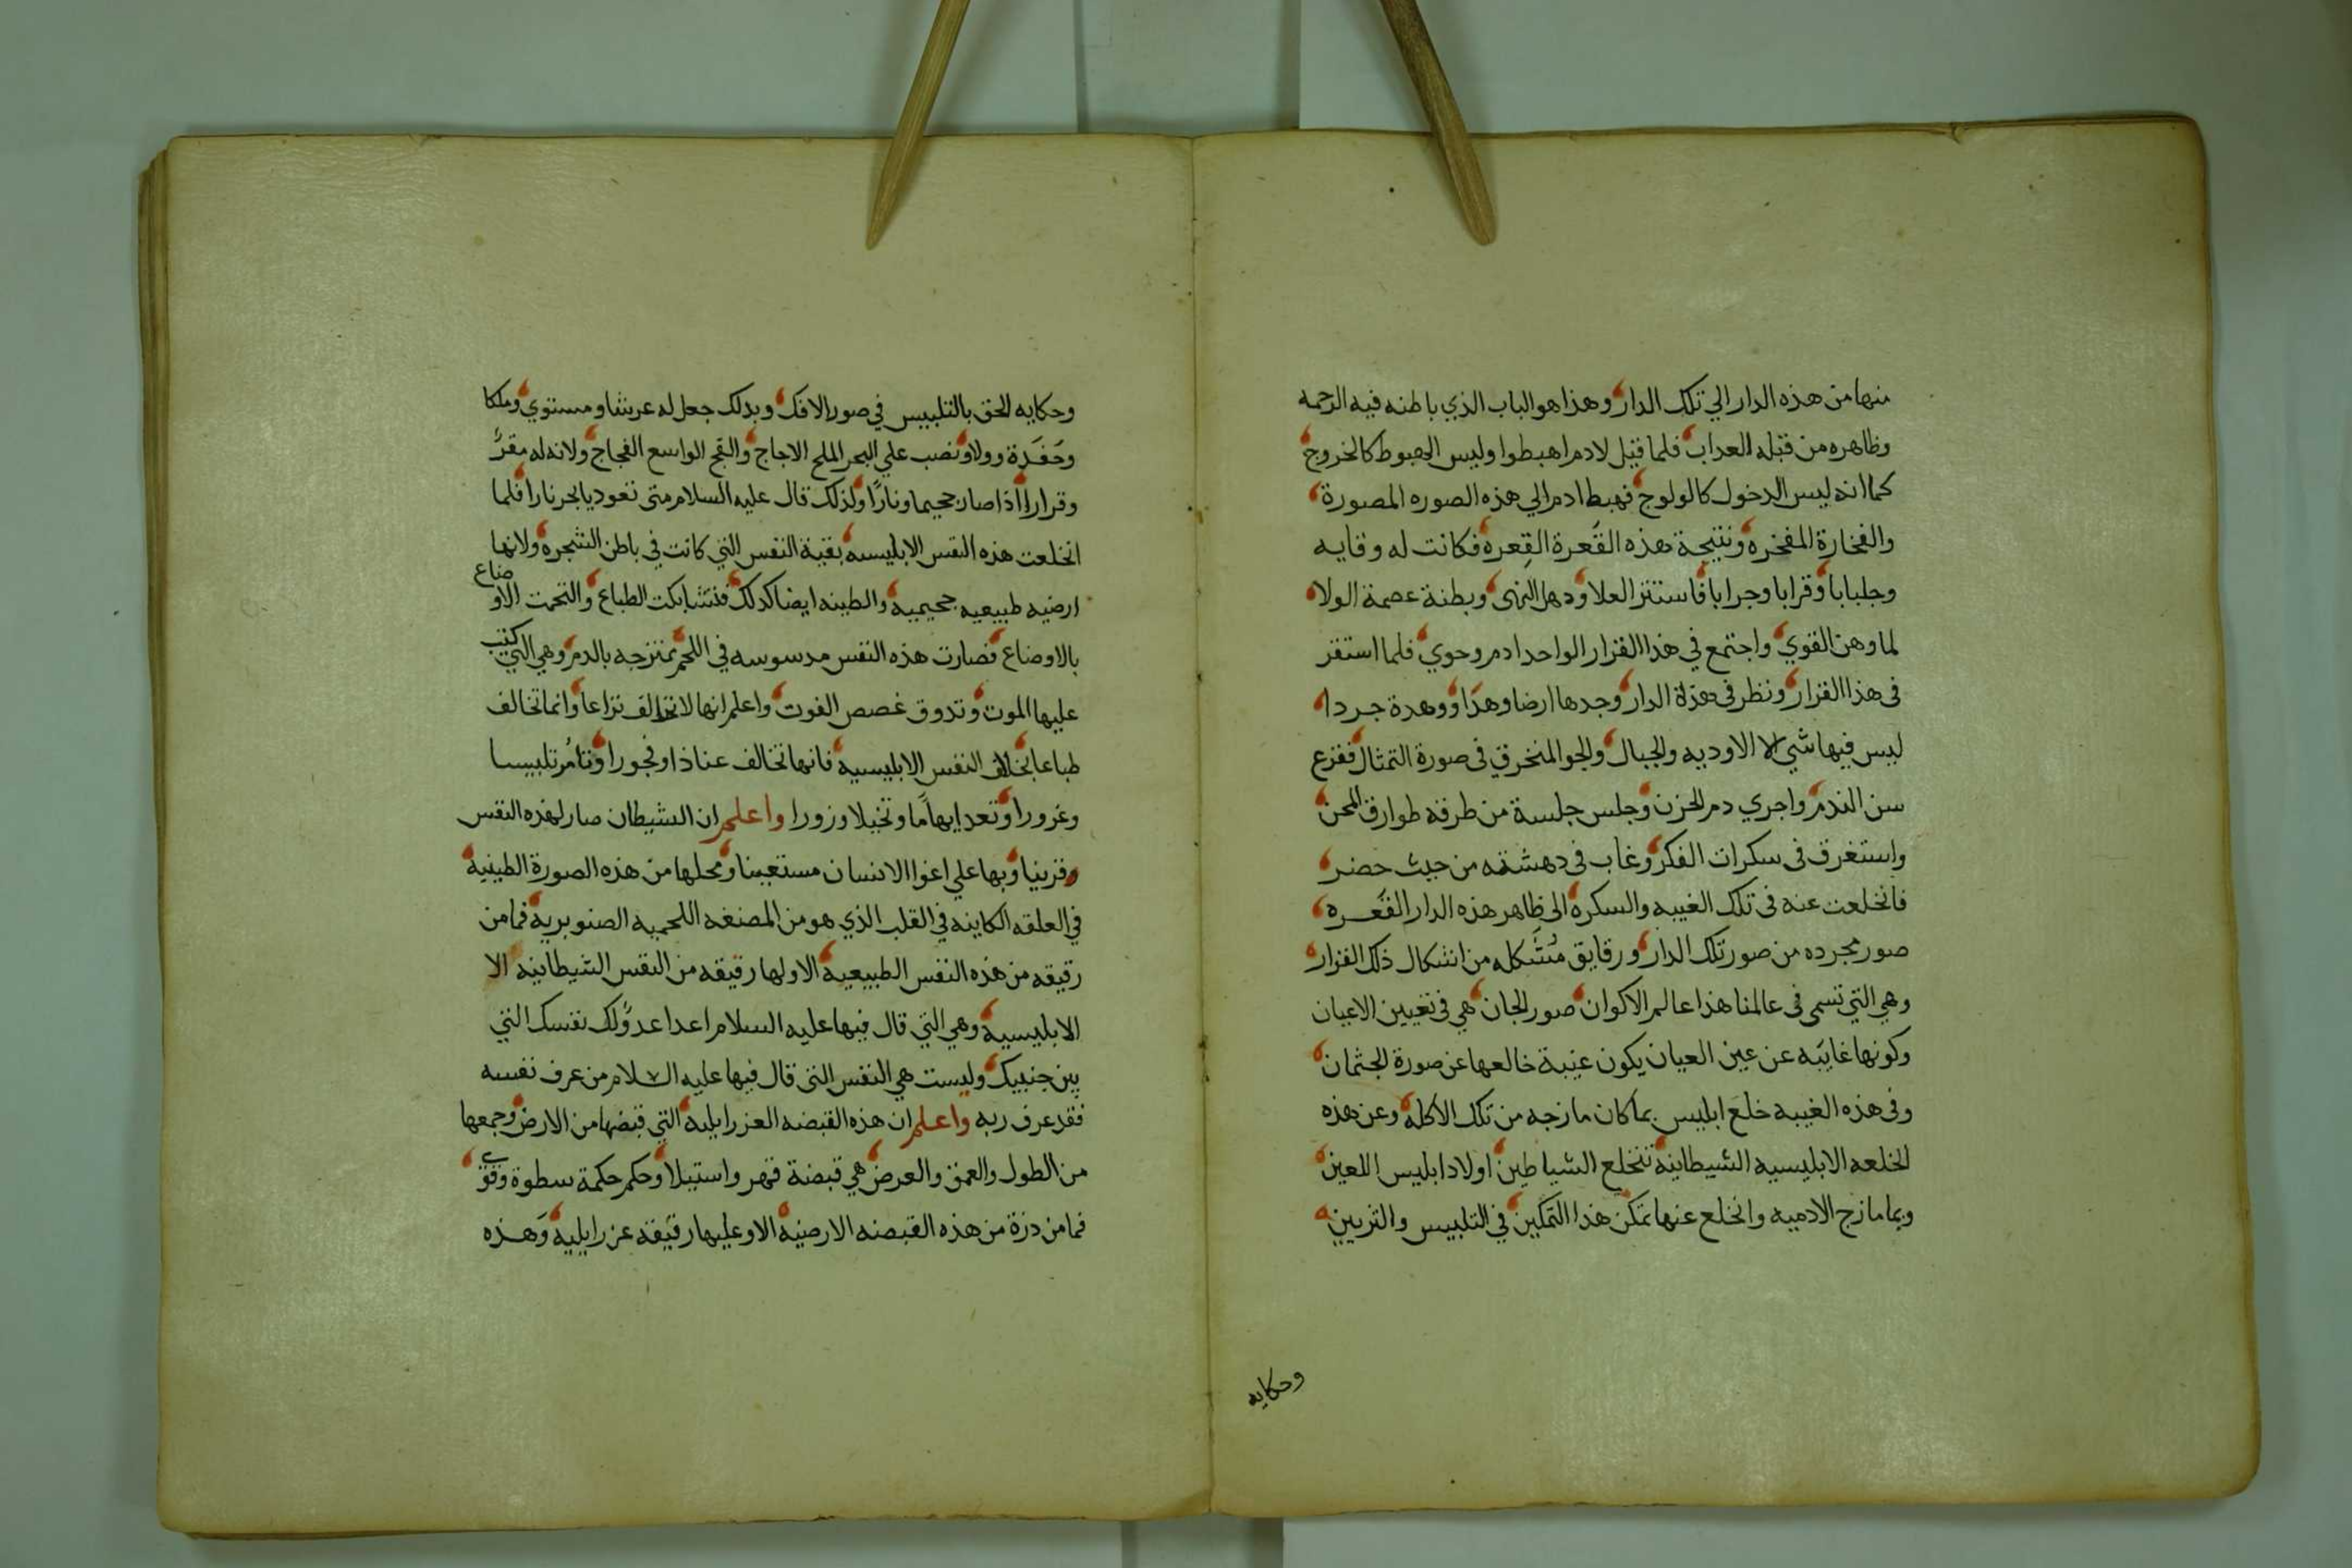 منها من هذه الدار الي تلك الدار وهذا هو الباب الذي باطنه فيه الرحمه
وظاهره من قبله العداب فلما قيل لادم اهبطوا وليس الهبوط كالخروج
كما انه ليس الدخول كالولوج فهبط ادم الي هذه الصوره المصورة
والفخارة المفخره ونتيجة هذه القَعرة القِعره فكانت له وقايه
وجلبابا وقرابا وجرابا فاستتر العلا ودهل النهى وبطنة عصمة الولا
لما وهن القوي واجتمع في هذا القرار الواحد ادم وحوي فلما استقر
فى هذا القرار ونظر فى هذة الدار وجدها ارضا وهدًا ووهدة جردا
ليس فيها شي الا الاوديه والجبال والجو المنخرق فى صورة التمثال فقرع
سن الندم واجري دم الحزن وجلس جلسة من طرقه طوارق المحن
واستغرق فى سكرات الفكر وغاب فى دهشته من حيث حضر
فانخلعت عنه فى تلك الغيبه والسكره الى ظاهر هذه الدار القَعره
صور مجرده من صور تلك الدار ورقايق مُتشَكله من اشكال ذلك القرار
وهي التي تسمى فى عالمنا هذا عالم الاكوان صور الجان هي فى تغيين الاعيان
وكونها غايبه عن عين العيان يكون غيبة خالعها عن صورة الجثمان
وفى هذه الغيبه خلع ابليس بما كان مازجه من تلك الاكله وعن هذه
الخلعه الابليسيه الشيطانية تنخلع الشياطين اولاد ابليس اللعين
وبما مازج الادميه وانخلع عنها تمكن هذا التمكين في التلبيس والتزيين
وحكايه
وحكايه الحق بالتلبيس في صور الافك وبذلك جعل له عرشا ومستوي وملكا
وحَفَدة وولا ونصب علي البحر الملح الاجاج والفج الواسع الفجاج ولانه له مقرُّ
وقرارا اذا صار جحيما ونارًا ولذلك قال عليه السلام متى تعود يا بحر نارا فلما
انخلعت هذه النفس الابليسيه بقية النفس التي كانت في باطن الشجره ولانها
ارضيه طبيعيه جحيميه والطينه ايضا كدلك فتشابكت الطباع والتحمت الاوضاع
بالاوضاع فصارت هذه النفس مدسوسه في اللحم ممتزجه بالدم وهي التي كتب
عليها الموت وتدوق غصص الفوت واعلم انها لا تخالف نزاعا وانما تخالف
طباعا بخلاف النفس الابليسيه فانها تخالف عنادا وفجورا وتامُر تلبيسا
وغرورا وتعد ايهامًا وتخيلا وزورا واعلم ان الشيطان صار لهذه النفس
قرينا وبها علي اغوا الانسان مستعينا ومحلها من هذه الصورة الطينية
في العلقه الكاينه في القلب الذي هو من المضغه اللحميه الصنوبريه فما من
رقيقه من هذه النفس الطبيعية الا ولها رقيقه من النفس الشيطانيه الا
الابليسيه وهي التي قال فيها عليه السلام اعدا عدوُّلك نفسك التي
بين جنبيك وليست هي النفس التي قال فيها عليه السلام من عرف نفسه
فقد عرف ربه واعلم ان هذه القبضه العزرايليه التي قبضها من الارض وجمعها
من الطول والعمق والعرض هي قبضة قهر واستيلا وحكم حكمة سطوة وقوّ
فما من ذرة من هذه القبضه الارضيه الا وعليها رقيقه عزرايلية وَهذه